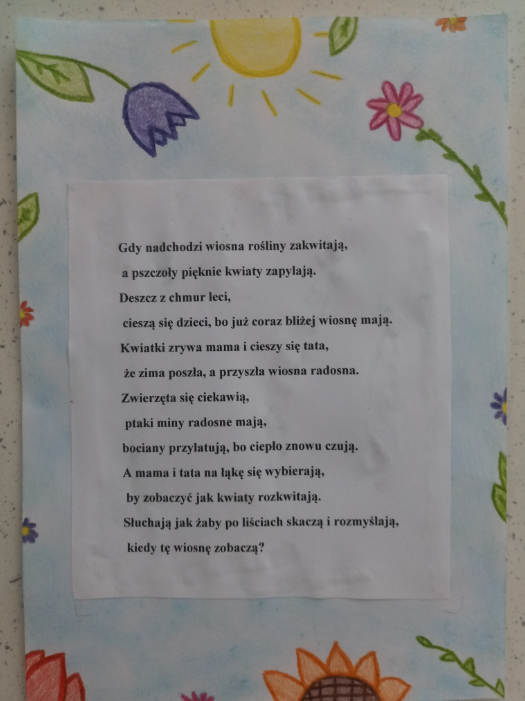 Gdy nadchodzi wiosna rośliny zakwitają,
a pszczoły pięknie kwiaty zapylają.
Deszcz z chmur leci,
cieszą się dzieci, bo już coraz bliżej wiosnę mają.
Kwiatki zrywa mama i cieszy się tata,
że zima poszła, a przyszła wiosna radosna.
Zwierzęta się ciekawią,
ptaki miny radosne mają,
bociany przylatują, bo ciepło znowu czują.
A mama i tata na łąkę się wybierają,
by zobaczyć jak kwiaty rozkwitają.
Słuchają jak żaby po liściach skaczą i rozmyślają,
kiedy tę wiosnę zobaczą?